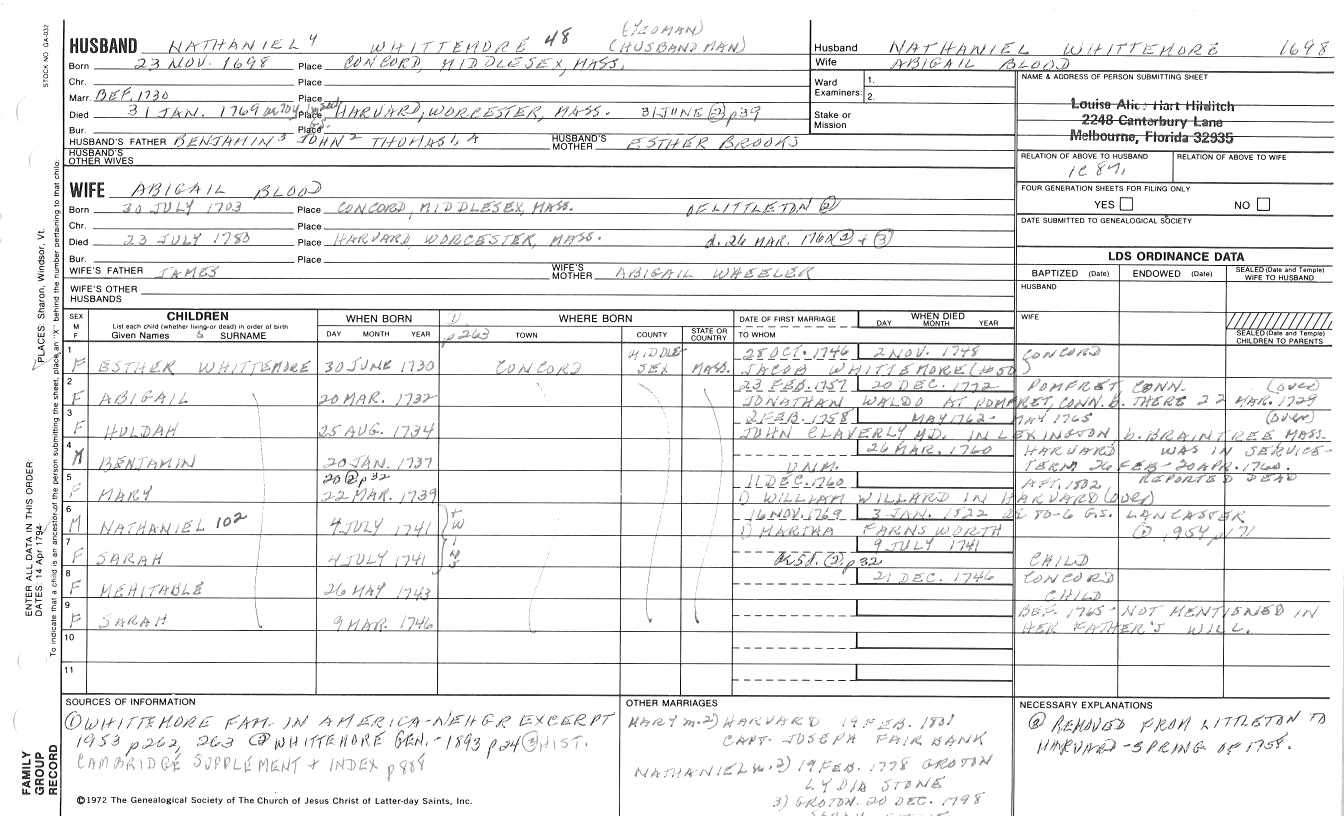 STOCK NO. GA-032
HUSBAND NATHANIEL 4 WHITTEMORE 48 (YEOMAN) (HUSBANDMAN)
Born 23 NOV. 1698 Place CONCORD, MIDDLESEX, MASS.
Chr. Place
Marr. BEF. 1730 Place
Died 31 JAN. 1769 Place HARVARD, WORCESTER, MASS. 31 JUNE (2) p39
Bur. Place
HUSBAND'S FATHER BENJAMIN 3 JOHN 2 THOMAS 1, A HUSBAND'S MOTHER ESTHER BROOKS
HUSBAND'S OTHER WIVES
WIFE ABIGAIL BLOOD
Born 30 JULY 1703 Place CONCORD, MIDDLESEX, MASS. OF LITTLETON @
Chr. Place
Died 23 JULY 1780 Place HARVARD, WORCESTER, MASS. d. 26 MAR. 1760 (2) + (3)
Bur. Place
WIFE'S FATHER JAMES WIFE'S MOTHER ABIGAIL WHEELER
WIFE'S OTHER HUSBANDS
Husband NATHANIEL WHITTEMORE 1698
Wife ABIGAIL BLOOD
Ward Examiners: 1. 2.
Stake or Mission
NAME & ADDRESS OF PERSON SUBMITTING SHEET
Louise Alice Hart Hilditch
2248 Canterbury Lane
Melbourne, Florida 32935
RELATION OF ABOVE TO HUSBAND RELATION OF ABOVE TO WIFE
FOUR GENERATION SHEETS FOR FILING ONLY
YES NO
DATE SUBMITTED TO GENEALOGICAL SOCIETY
LDS ORDINANCE DATA
BAPTIZED (Date) ENDOWED (Date) SEALED (Date and Temple) WIFE TO HUSBAND
HUSBAND
WIFE
SEALED (Date and Temple) CHILDREN TO PARENTS
SEX M F CHILDREN WHEN BORN WHERE BORN DATE OF FIRST MARRIAGE WHEN DIED
List each child (whether living or dead) in order of birth
Given Names & SURNAME DAY MONTH YEAR p263 TOWN COUNTY STATE OR COUNTRY TO WHOM DAY MONTH YEAR
1 F ESTHER WHITTEMORE 30 JUNE 1730 CONCORD MIDDLESEX MASS. 28 OCT. 1746 2 NOV. 1748 CONCORD
JACOB WHITTEMORE (#50)
2 F ABIGAIL 20 MAR. 1732 23 FEB. 1757 20 DEC. 1772 POMFRET, CONN. (OVER)
JONATHAN WALDO AT POMFRET, CONN. b. THERE 22 MAR. 1729
3 F HULDAH 25 AUG. 1734 2 FEB. 1758 MAY 1762 - MAY 1765 (OVER)
JOHN CLAVERLY, MD. IN LEXINGTON b. BRAINTREE MASS.
4 M BENJAMIN 20 JAN. 1737 26 MAR. 1760 HARVARD WAS IN SERVICE-
UNM. TERM 26 FEB - 20 APR. 1760.
5 F MARY 20 (2) p32 22 MAR. 1739 11 DEC. 1760 APT. 1802 REPORTED DEAD
1) WILLIAM WILLARD IN HARVARD (OVER)
6 M NATHANIEL 102 4 JULY 1741 16 NOV. 1769 3 JAN. 1822 80-6 G.S. LANCASTER
1) MARTHA FARNSWORTH
7 F SARAH 4 JULY 1741 9 JULY 1741 CHILD
(2) p32
8 F MEHITABLE 26 MAY 1743 21 DEC. 1746 CONCORD
CHILD
9 F SARAH 9 MAR. 1746 BEF. 1765 - NOT MENTIONED IN
HER FATHER'S WILL.
10
11
SOURCES OF INFORMATION
(1) WHITTEMORE FAM. IN AMERICA - NEHGR EXCERPT
1953 p262, 263 (2) WHITTEMORE GEN. - 1893 p24 (3) HIST.
CAMBRIDGE SUPPLEMENT + INDEX
OTHER MARRIAGES
MARY m. 2) HARVARD 19 FEB. 1781
CAPT. JOSEPH FAIRBANK
NATHANIEL m. 2) 19 FEB. 1778 GROTON
LYDIA STONE
3) GROTON. 20 DEC. 1798
NECESSARY EXPLANATIONS
@ REMOVED FROM LITTLETON TO
HARVARD - SPRING OF 1758.
©1972 The Genealogical Society of The Church of Jesus Christ of Latter-day Saints, Inc.
FAMILY GROUP RECORD
ENTER ALL DATA IN THIS ORDER:
DATES: 14 Apr 1794
PLACES: Sharon, Windsor, Vt.
To indicate that a child is an ancestor of the person submitting the sheet, place an "X" behind the number pertaining to that child.